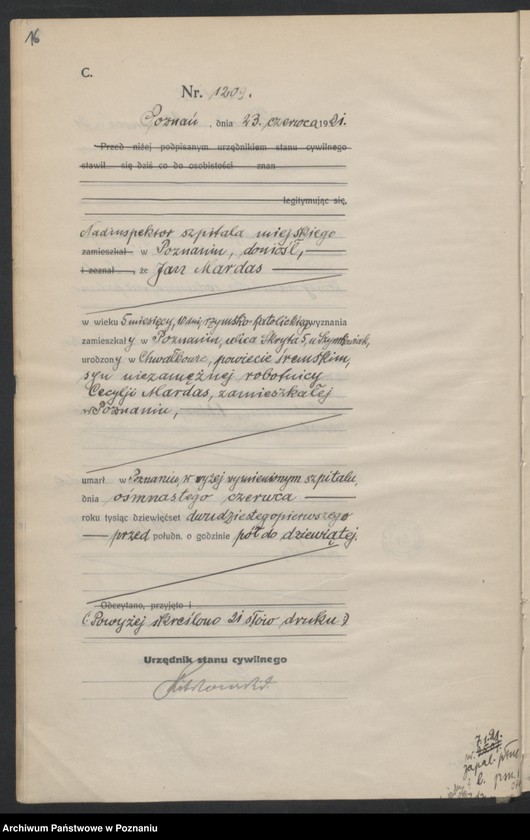 16
C.
Nr. 1209.
Poznań, dnia 23. czerwca 1921.
Przed niżej podpisanym urzędnikiem stanu cywilnego
stawił się dziś co do osobistości znan
legitymując się,
Nadinspektor szpitala miejskiego
zamieszkał w Poznaniu, doniósł,
i zeznał, że Jan Mardas
w wieku 5 miesięcy, 10 dni, rzymsko katolickiego wyznania
zamieszkały w Poznaniu, ulica Skryta 5, u
urodzony w powiecie śremskim,
syn niezamężnej robotnicy
Cecylji Mardas, zamieszkałej
w Poznaniu,
umarł w Poznaniu, w wyżej wymienionym szpitalu,
dnia ośmnastego czerwca
roku tysiąc dziewięćset dwudziestego pierwszego
przed połudn. o godzinie pół do dziewiątej.
Odczytano, przyjęto i
(Powyżej skreślono 21 słów druku.)
Urzędnik stanu cywilnego
Archiwum Państwowe w Poznaniu